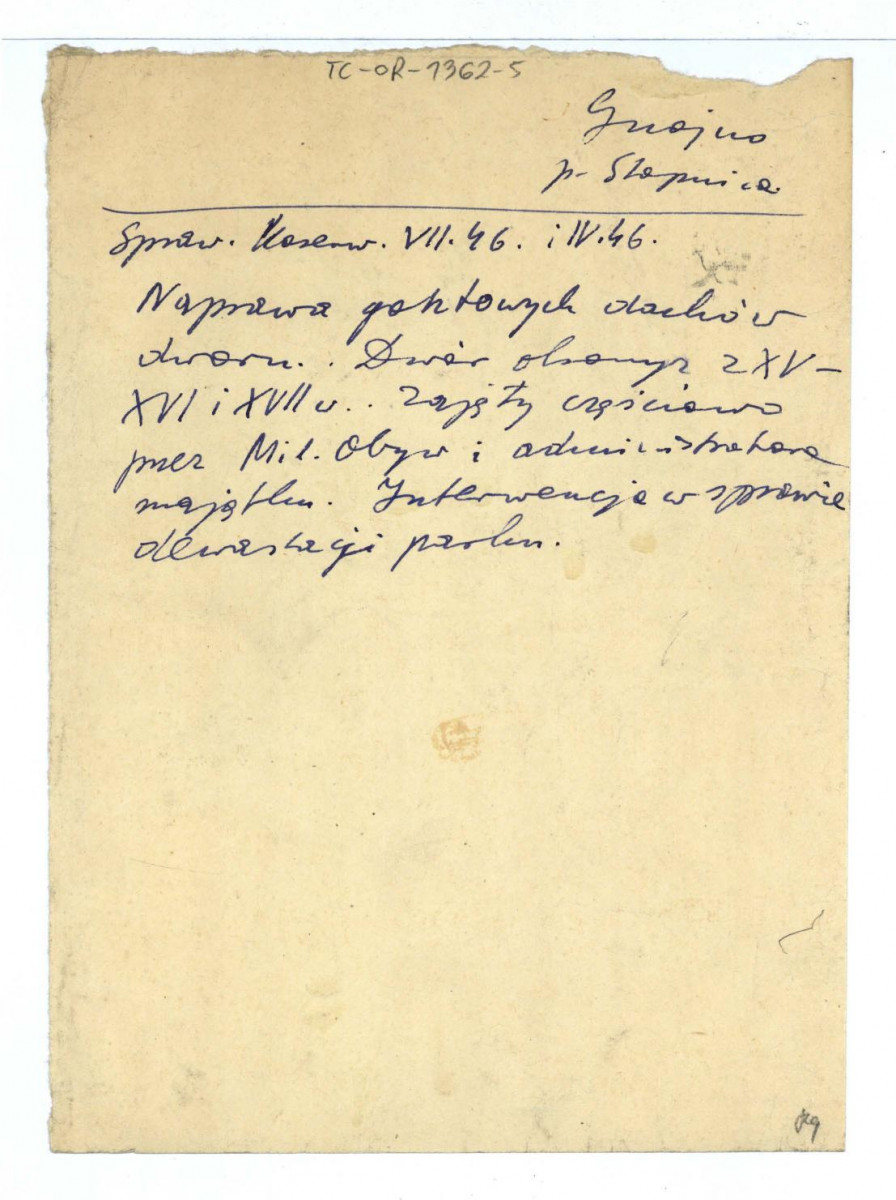 TC-OR-1362-5
Gnojno
p. Stopnica.
Spraw. Konserw. VII.46. i IV.46.
Naprawa gontowych dachów
dworu.. Dwór obronny z XV-
XVI i XVII w.. Zajęty częściowo
przez Mil. Obyw i administratora
majątku. Interwencja w sprawie
dewastacji parku.